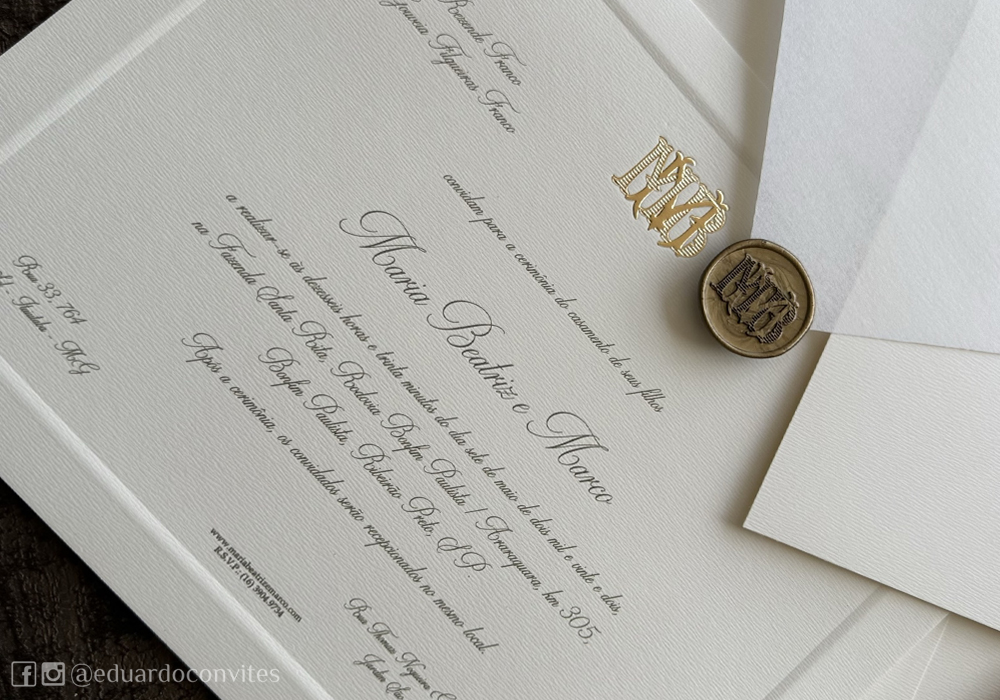 Rezende Franco
Gouveia Filgueiras Franco
convidam para a cerimônia do casamento de seus filhos
Maria Beatriz e Marco
a realizar-se às dezesseis horas e trinta minutos do dia sete de maio de dois mil e vinte e dois,
na Fazenda Santa Rita, Rodovia Bonfim Paulista / Araraquara, km 305,
Bonfim Paulista, Ribeirão Preto, SP.
Após a cerimônia, os convidados serão recepcionados no mesmo local.
Rua 33, 764
- MG
Rua Thomaz Nogueira
Jardim
www.mariabeatrizemarco.com
R.S.V.P.: (16) 3904.9754
@eduardoconvites